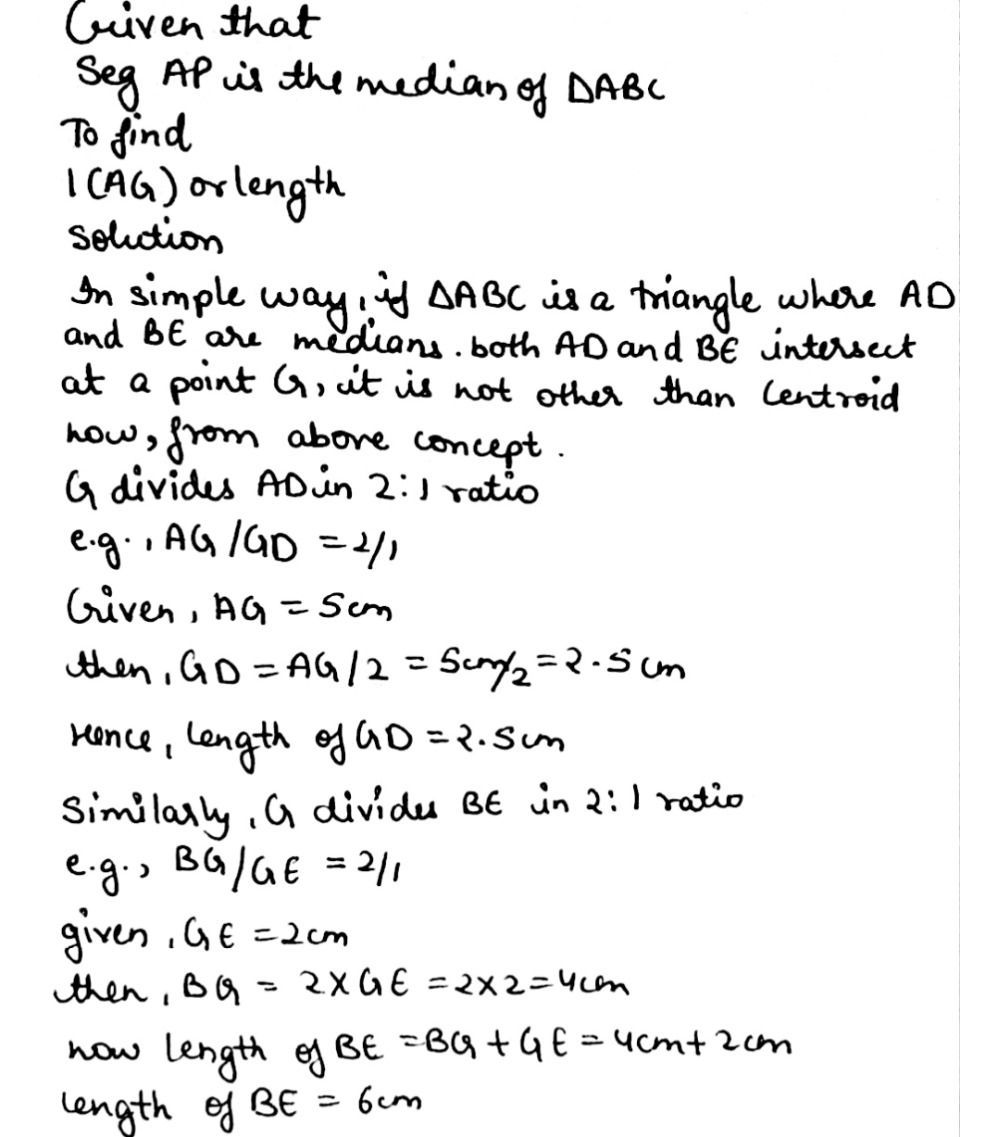 Given that
Seg AP is the median of ΔABC
To find
l(AG) or length
solution
In simple way, if ΔABC is a triangle where AD
and BE are medians. both AD and BE intersect
at a point G, it is not other than Centroid
now, from above concept.
G divides AD in 2:1 ratio
e.g., AG/GD = 2/1
Given, AG = 5cm
then, GD = AG/2 = 5cm/2 = 2.5 cm
Hence, length of GD = 2.5cm
Similarly, G divides BE in 2:1 ratio
e.g., BG/GE = 2/1
given, GE = 2cm
then, BG = 2X GE = 2x2 = 4cm
now length of BE = BG + GE = 4cm+ 2cm
length of BE = 6cm